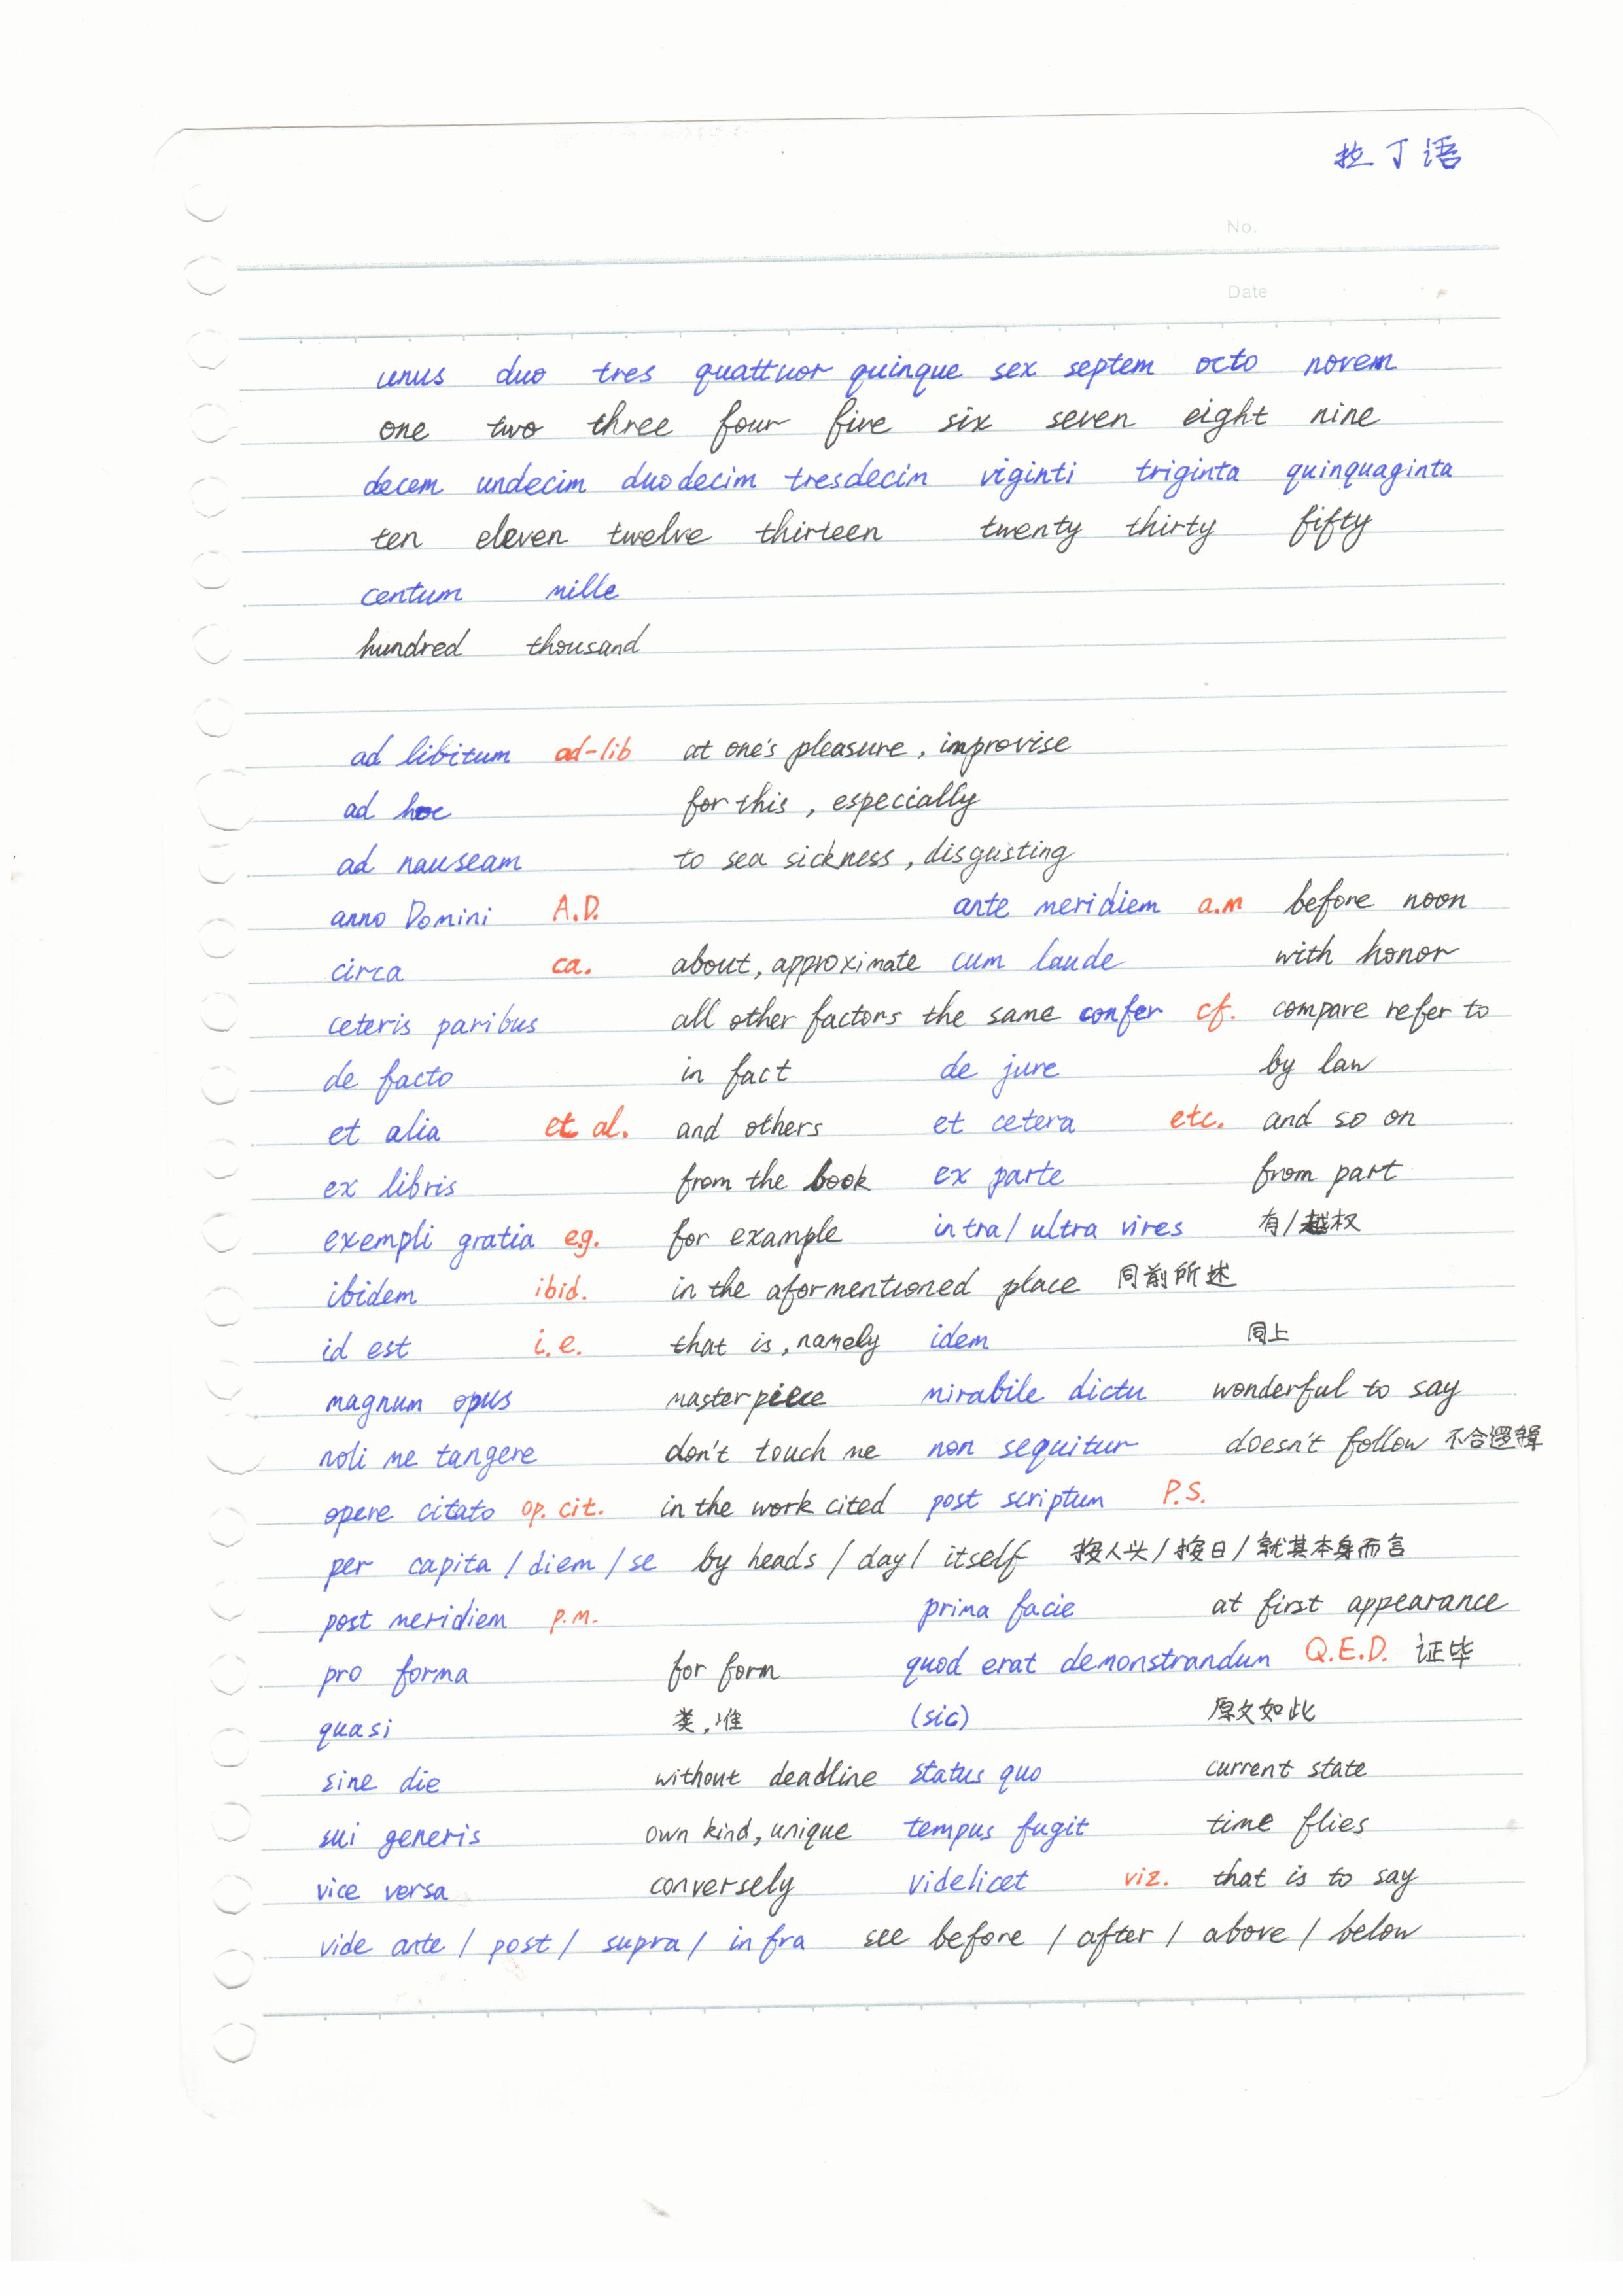 拉丁语
No.
Date
unus duo tres quattuor quinque sex septem octo novem
one two three four five six seven eight nine
decem undecim duodecim tresdecim viginti triginta quinquaginta
ten eleven twelve thirteen twenty thirty fifty
centum mille
hundred thousand
ad libitum ad-lib at one's pleasure, improvise
ad hoc for this, especially
ad nauseam to sea sickness, disgusting
anno Domini A.D. ante meridiem a.m before noon
circa ca. about, approximate cum laude with honor
ceteris paribus all other factors the same confer cf. compare refer to
de facto in fact de jure by law
et alia et al. and others et cetera etc. and so on
ex libris from the book ex parte from part
exempli gratia e.g. for example intra/ultra vires 有/越权
ibidem ibid. in the aformentioned place 同前所述
id est i.e. that is, namely idem 同上
magnum opus masterpiece mirabile dictu wonderful to say
noli me tangere don't touch me non sequitur doesn't follow 不合逻辑
opere citato op. cit. in the work cited post scriptum P.S.
per capita / diem / se by heads / day / itself 按人头/按日/就其本身而言
post meridiem p.m. prima facie at first appearance
pro forma for form quod erat demonstrandum Q.E.D. 证毕
quasi 类,准 (sic) 原文如此
sine die without deadline status quo current state
sui generis own kind, unique tempus fugit time flies
vice versa conversely videlicet viz. that is to say
vide ante / post / supra / infra see before / after / above / below